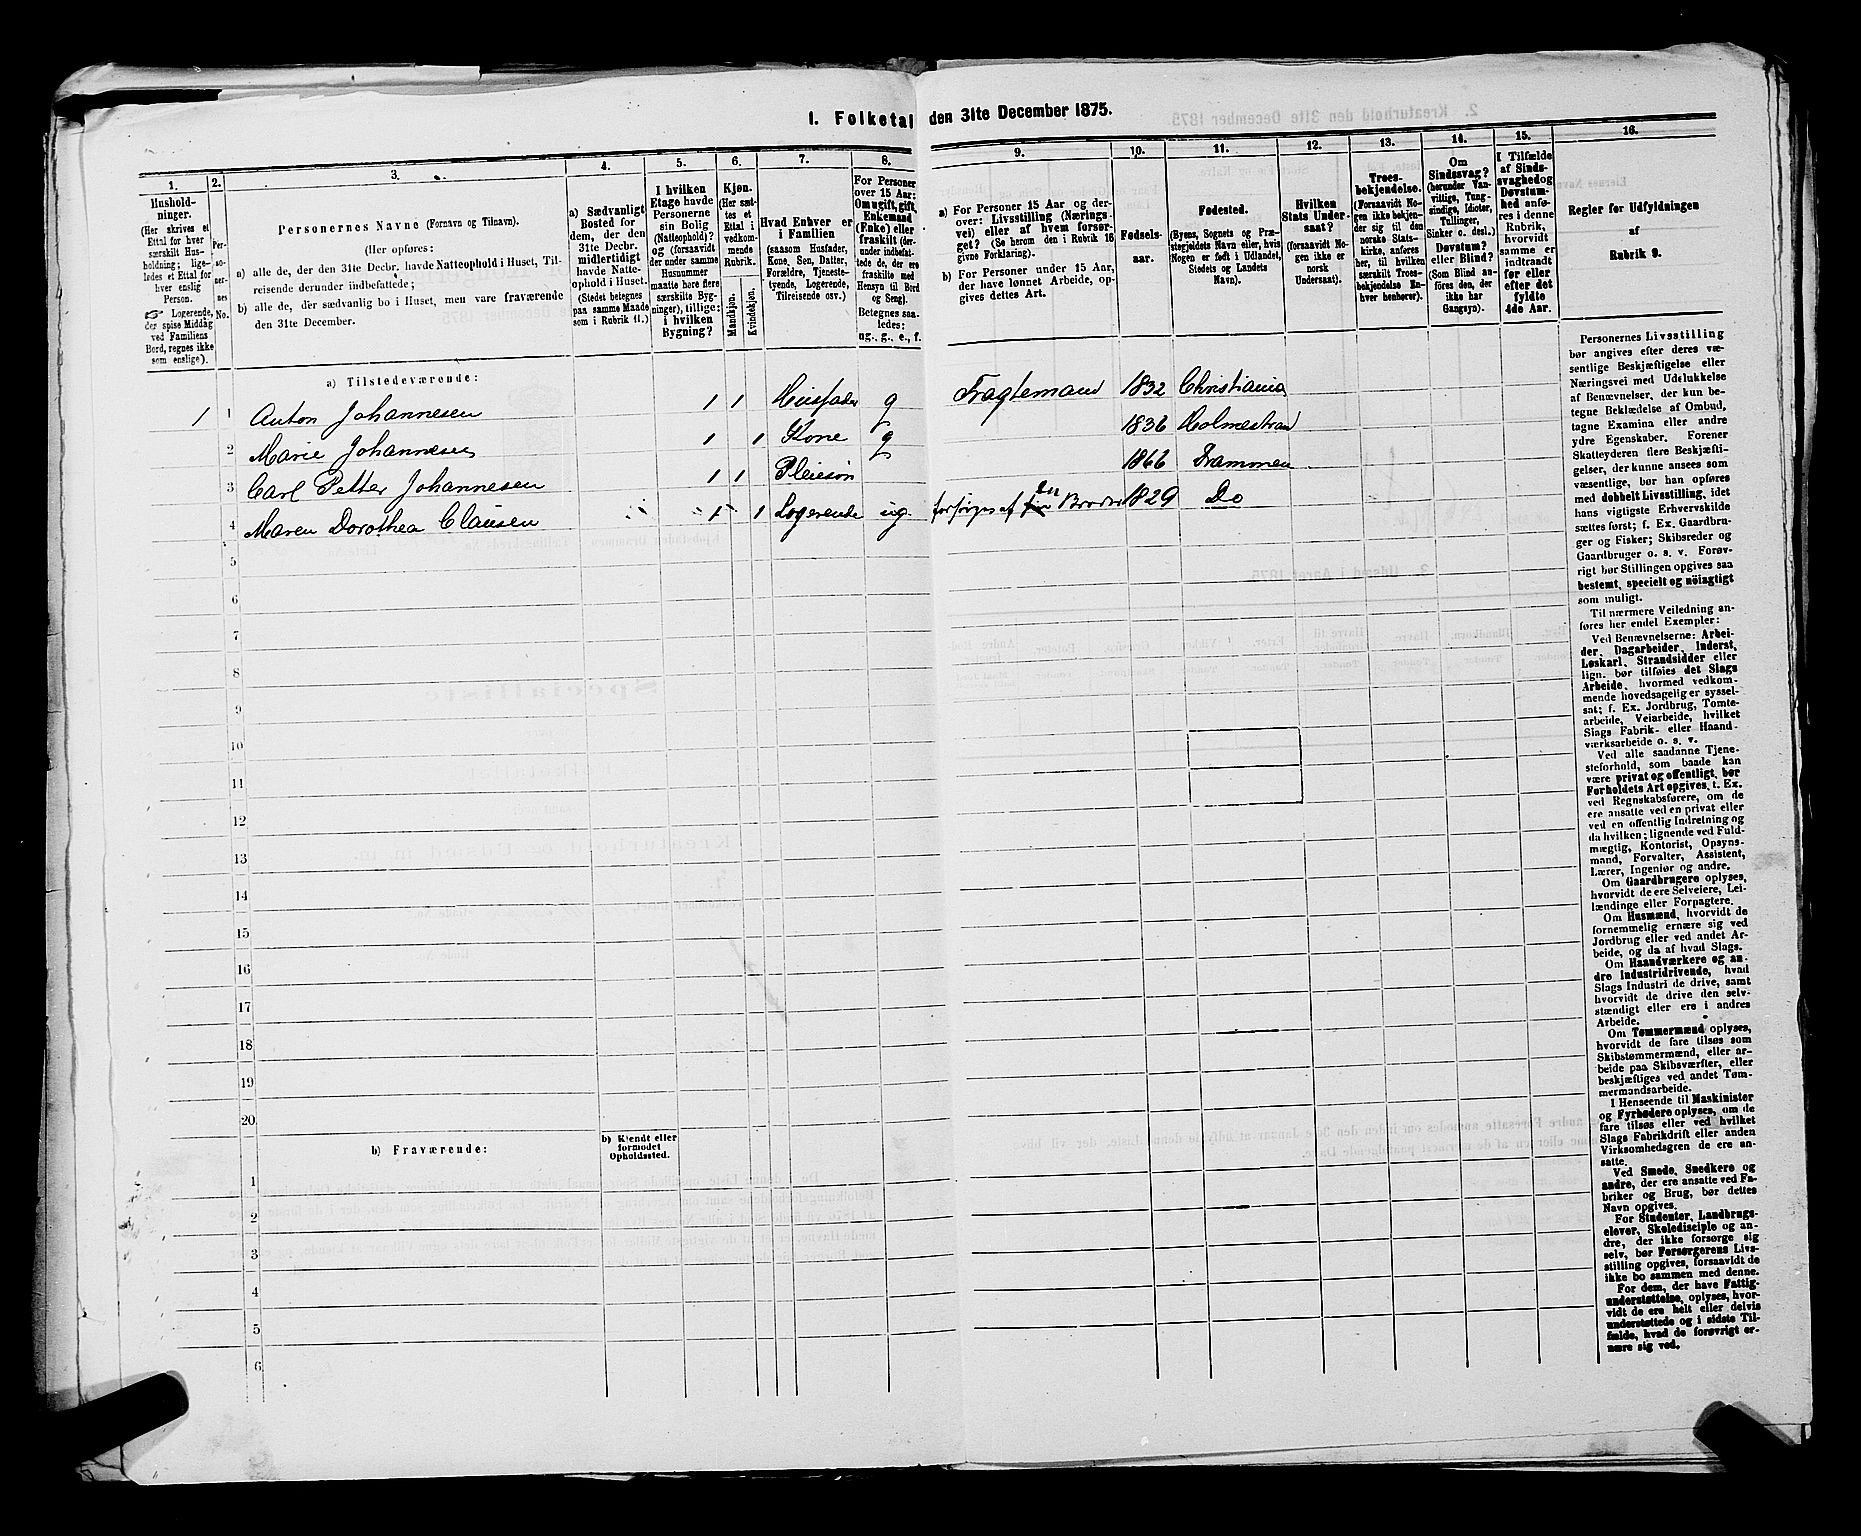 I. Folketal den 31te December 1875.
1. 2. 3. 4. 5. 6. 7. 8. 9. 10. 11. 12. 13. 14. 15. 16.
Hushold-
ninger.
(Her skrives et
Ettal for hver
særskilt Hus-
holdning; lige-
ledes et Ettal for
hver enslig
Person.
☞ Logerende,
der spise Middag
ved Familiens
Bord, regnes ikke
som enslige).
Per-
so-
ner-
nes
No.
Personernes Navne (Fornavn og Tilnavn).
(Her opføres:
a) alle de, der den 31te Decbr. havde Natteophold i Huset, Til-
reisende derunder indbefattede;
b) alle de, der sædvanlig bo i Huset, men vare fraværende
den 31te December.
a) Sædvanligt
Bosted for
dem, der den
31te Decbr.
midlertidigt
havde Natte-
ophold i Huset.
(Stedet betegnes
paa samme Maade
som i Rubrik 11.)
I hvilken
Etage havde
Personerne
sin Bolig
(Natteophold)?
og (forsaavidt
der under samme
Husnummer
maatte høre flere
særskilte Byg-
ninger), tillige:
i hvilken
Bygning?
Kjøn.
(Her sæt-
tes et
Ettal i
vedkom-
mende
Rubrik.
Mandkjøn.
Kvindekjøn.
Hvad Enhver er
i Familien
(saasom Husfader,
Kone, Søn, Datter,
Forældre, Tjeneste-
tyende, Logerende,
Tilreisende osv.)
For Personer
over 15 Aar:
Om ugift, gift,
Enkemand
(Enke) eller
fraskilt (der-
under indbefat-
tede de, der ere
fraskilte med
Hensyn til Bord
og Seng).
Betegnes saa-
ledes:
ug., g., e., f.
a) For Personer 15 Aar og der-
over: Livsstilling (Nærings-
vei) eller af hvem forsør-
get? (Se herom den i Rubrik 16
givne Forklaring).
b) For Personer under 15 Aar,
der have lønnet Arbeide, op-
gives dettes Art.
Fødsels-
aar.
Fødested.
(Byens, Sognets og Præ-
stegjeldets Navn eller, hvis
Nogen er født i Udlandet,
Stedets og Landets
Navn).
Hvilken
Stats Under-
saat?
(forsaavidt No-
gen ikke er
norsk
Undersaat).
Troes-
bekjendelse.
(Forsaavidt No-
gen ikke bekjen-
der sig til den
norske Stats-
kirke, anføres
her, til hvilken
særskilt Troes-
bekjendelse En-
hver henhører).
Om
Sindssvag?
(herunder Van-
vittige, Tung-
sindige, Idioter,
Tullinger,
Sinker o. desl.)
Døvstum?
eller Blind?
(Som Blind an-
føres den, der
ikke har
Gangsyn).
I Tilfælde
af Sinds-
svaghed og
Døvstum-
hed anfø-
res i denne
Rubrik,
hvorvidt
samme er
indtraadt
før eller
efter det
fyldte
4de Aar.
Regler for Udfyldningen
af
Rubrik 9.
a) Tilstedeværende:
1 1 Anton Johannesen 1 1 Husfader g Fragtemand 1832 Christiania
2 Marie Johannesen 1 1 Kone g 1836 Holmestran
3 Carl Petter Johannesen 1 1 Pleiesøn 1866 Drammen
4 Maren Dorothea Clausen 1 1 Logerende ug. forsørges af en Broder 1829 Do
5
6
7
8
9
10
11
12
13
14
15
16
17
18
19
20
b) Fraværende:
b) Kjendt eller
formodet
Opholdssted.
1
2
3
4
5
6
Personernes Livsstilling
bør angives efter deres væ-
sentlige Beskjæftigelse eller
Næringsvei med Udelukkelse
af Benævnelser, der kun be-
tegne Beklædelse af Ombud,
tagne Examina eller andre
ydre Egenskaber. Forener
Skatteyderen flere Beskjæfti-
gelser, der kunne ansees som
væsentlige, bør han opføres
med dobbelt Livsstilling, idet
hans vigtigste Erhvervskilde
sættes først; f. Ex. Gaardbru-
ger og Fisker; Skibsreder og
Gaardbruger o. s. v. Forøv-
rigt bør Stillingen opgives saa
bestemt, specielt og nøiagtigt
som muligt.
Til nærmere Veiledning an-
føres her endel Exempler:
Ved Benævnelserne: Arbei-
der, Dagarbeider, Inderst,
Løskarl, Strandsidder eller
lign. bør tilføies det Slags
Arbeide, hvormed vedkom-
mende hovedsagelig er syssel-
sat; f. Ex. Jordbrug, Tomte-
arbeide, Veiarbeide, hvilket
Slags Fabrik- eller Haand-
værksarbeide o. s. v.
Ved alle saadanne Tjene-
steforhold, som baade kan
være privat og offentligt, bør
Forholdets Art opgives, t. Ex.
ved Regnskabsførere, om de
ere ansatte ved en privat eller
ved en offentlig Indretning og
da hvilken; lignende ved Fuld-
mægtig, Kontorist, Opsyns-
mand, Forvalter, Assistent,
Lærer, Ingeniør og andre.
Om Gaardbrugere oplyses,
hvorvidt de ere Selveiere, Lei-
lændinge eller Forpagtere.
Om Husmænd, hvorvidt de
fornemmelig ernære sig ved
Jordbrug eller ved andet Ar-
beide, og da af hvad Slags.
Om Haandværkere og an-
dre Industridrivende, hvad
Slags Industri de drive, samt
hvorvidt de drive den selv-
stændigt eller ere i andres
Arbeide.
Om Tømmermænd oplyses,
hvorvidt de fare tilsøs som
Skibstømmermænd, eller ar-
beide paa Skibsværfter, eller
beskjæftiges ved andet Tøm-
mermandsarbeide.
I Henseende til Maskinister
og Fyrbødere oplyses, om de
fare tilsøs eller ved hvilket
Slags Fabrikdrift eller anden
Virksomhedsgren de ere an-
satte.
Ved Smede, Snedkere og
andre, der ere ansatte ved Fa-
briker og Brug, bør dettes
Navn opgives.
For Studenter, Landbrugs-
elever, Skoledisciple og an-
dre, der ikke forsørge sig
selv, bør Forsørgerens Livs-
stilling opgives, forsaavidt de
ikke bo sammen med denne.
For dem, der have Fattig-
understøttelse, oplyses, hvor-
vidt de ere helt eller delvis
understøttede og i sidste Til-
fælde, hvad de forøvrigt er-
nære sig ved.